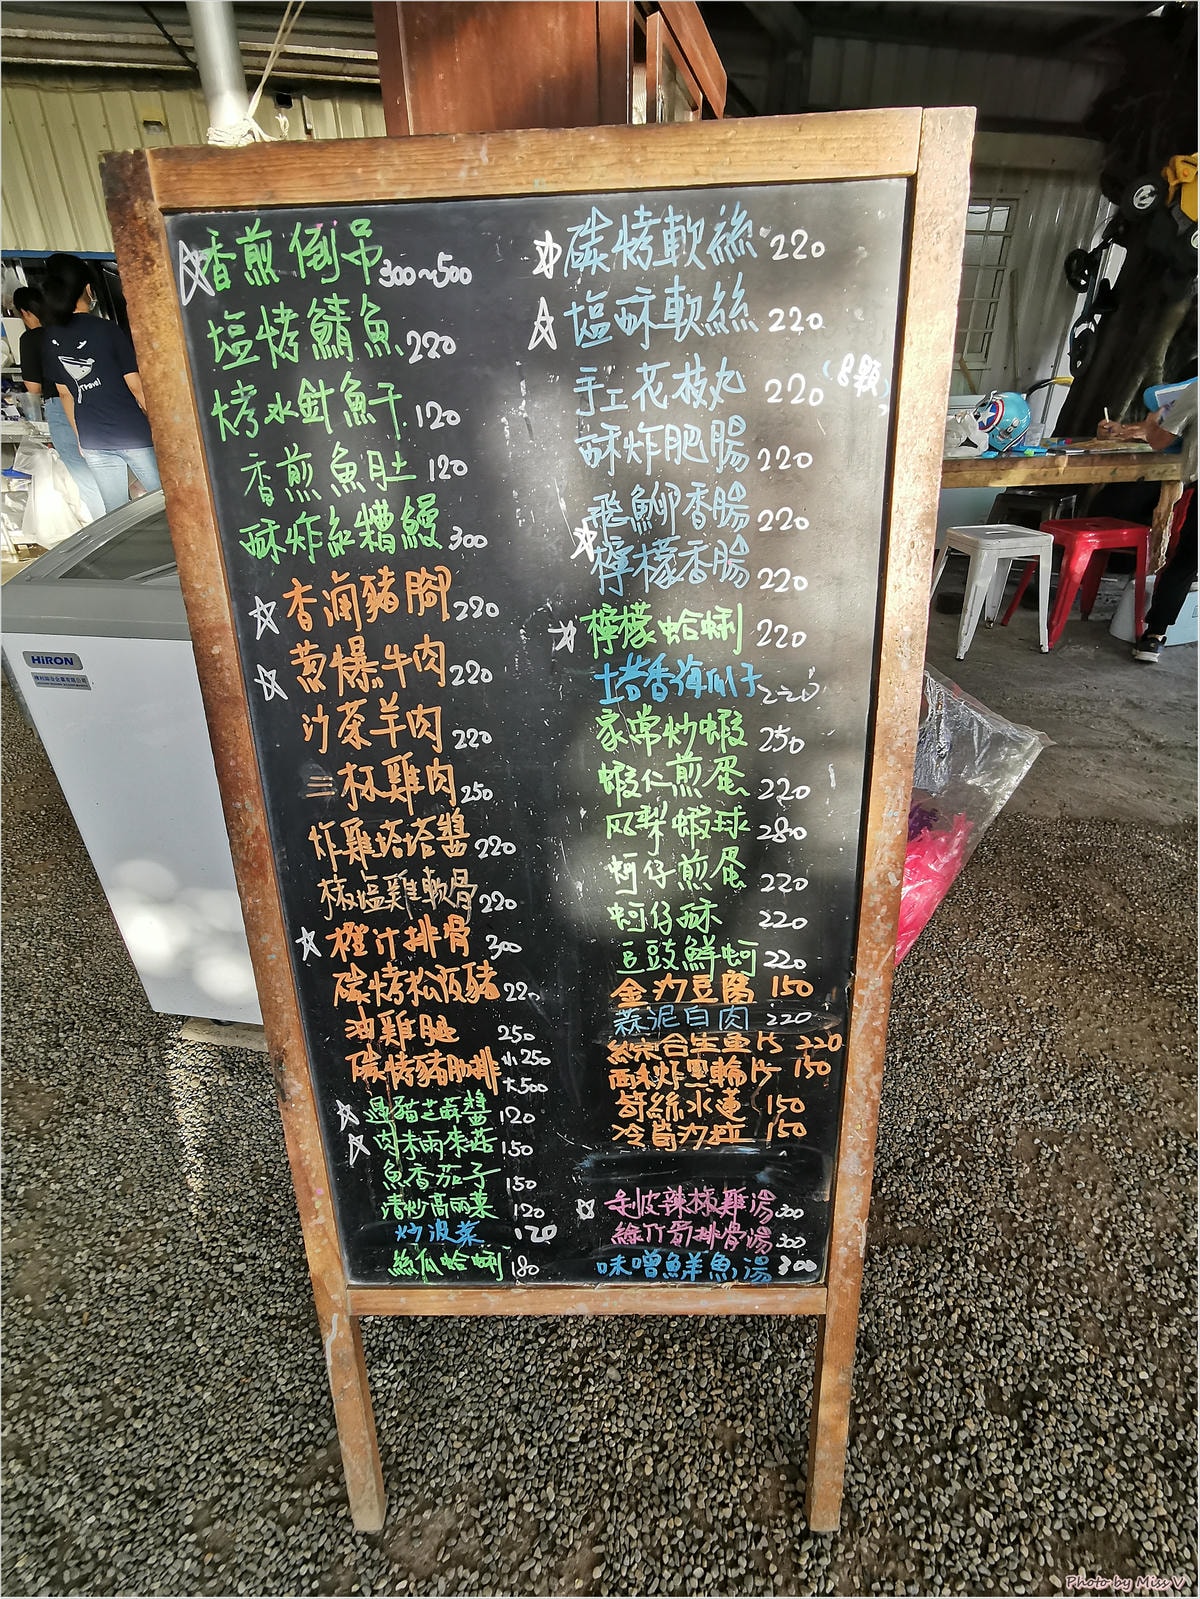 香煎倒吊 300~500
塩烤鯖魚 220
烤水針魚干 120
香煎魚肚 120
酥炸紅糟鰻 300
香滷豬腳 220
蔥爆牛肉 220
沙茶羊肉 220
三杯雞肉 250
炸雞塔塔醬 220
椒塩雞軟骨 220
橙汁排骨 300
碳烤松阪豬 220
油雞腿 250
碳烤豬肋排 小250
大500
過貓芝麻醬 120
肉末雨來菇 150
魚香茄子 150
清炒高麗菜 120
炒波菜 120
絲瓜蛤蜊 180
碳烤軟絲 220
塩酥軟絲 220
手工花枝丸 220 (8顆)
酥炸肥腸 220
飛魚卵香腸 220
檸檬香腸 220
檸檬蛤蜊 220
塔香海瓜子 220
家常炒蝦 250
蝦仁煎蛋 220
鳳梨蝦球 280
蚵仔煎蛋 220
蚵仔酥 220
豆豉鮮蚵 220
金沙豆腐 150
蒜泥白肉 220
綜合生魚片 220
酥炸黑輪片 150
破布子水蓮 150
冷筍沙拉 150
剝皮辣椒雞湯 300
綠竹筍排骨湯 300
味噌鮮魚湯 300
HiRON
Travel
Photo by Miss V